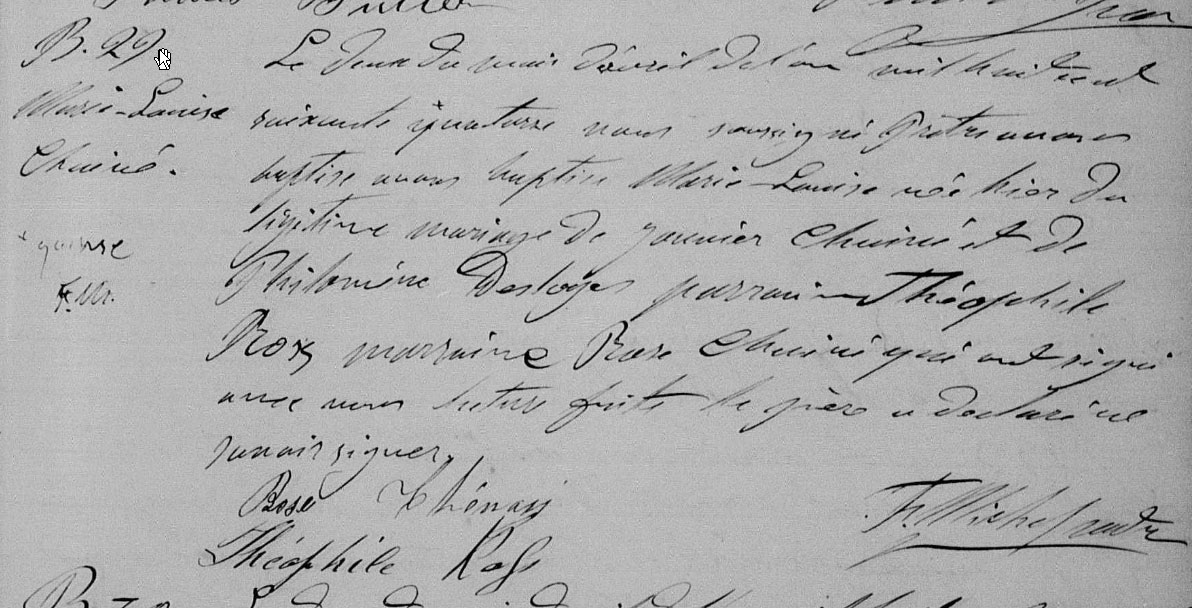 B. 29
Marie-Louise
Chainé.
+ quinze
F. M.
Le deux du mois d'avril de l'an mil huit cent
soixante +quatorze nous soussigné Prêtre avons
baptise avons baptise Marie-Louise née hier du
légitime mariage de Janvier Chainé et de
Philomène Desloges parrain Théophile
Ross marraine Rose Chainé qui ont signé
avec nous lecture faite le père a declaré ne
savoir signer.
Rose
Théophile Ross
B 30